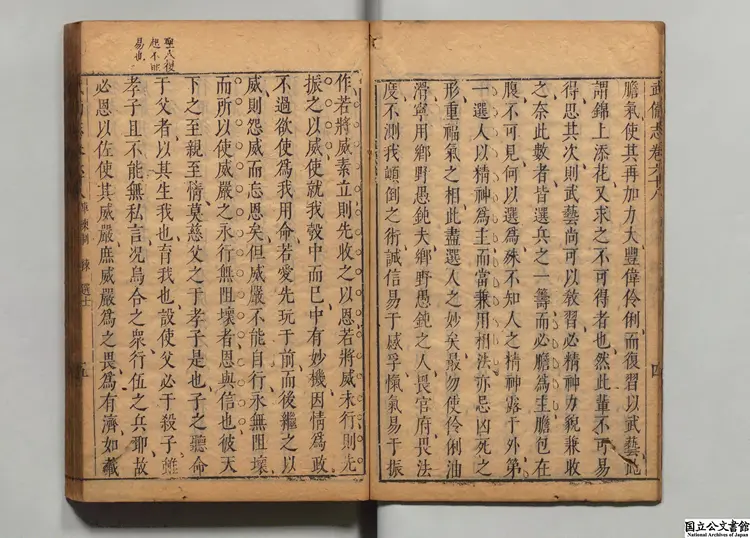 武備志卷六十八
四
膽氣使其再加力大豐偉伶俐而復習以武藝此
謂錦上添花又求之不可得者也然此輩不可易
得思其次則武藝尚可以教習必精神力貌兼收
之奈此數者皆選兵之一籌而必膽爲主膽包在
腹不可見何以選爲殊不知人之精神露于外第
一選人以精神爲主而當兼用相法亦忌凶死之
形重福氣之相此盡選人之妙矣最勿使伶俐油
滑寧用鄉野愚鈍夫鄉野愚鈍之人畏官府畏法
度不測我顛倒之術誠信易于感孚愾氣易于振
聖人復
起不能
易也
作若將威素立則先收之以恩若將威未行則先
振之以威使就我彀中而已中有妙機因情爲政
不過欲使爲我用命若愛先玩于前而後繼之以
威則怨威而忘恩矣但威嚴不能自行永無阻壞
而所以使威嚴之永行無阻壞者恩與信也彼天
下之至親至情莫慈父之于孝子是也子之聽命
于父者以其生我也育我也設使父必于殺子雖
孝子且不能無私言況烏合之衆行伍之兵耶故
必恩以佐使其威嚴庶威嚴爲之畏爲有濟如載
陣練制 練 選士
五
国立公文書館
National Archives of Japan